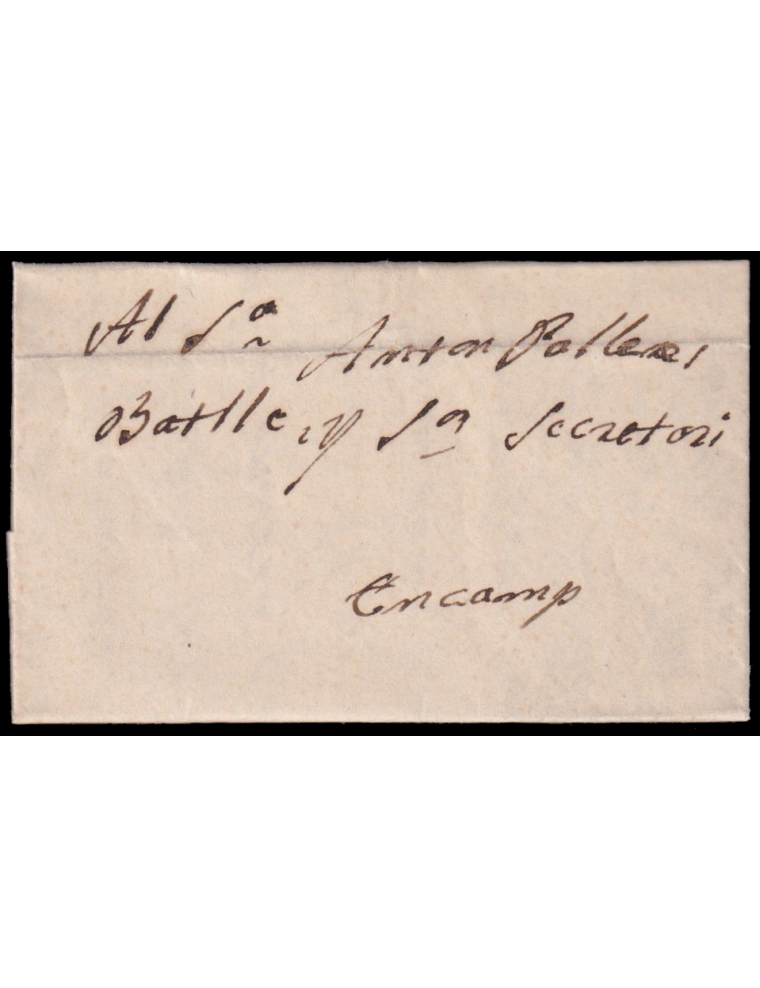 Al Sr Anton Palleres
Batlle, y Sr Secretari
Encamp